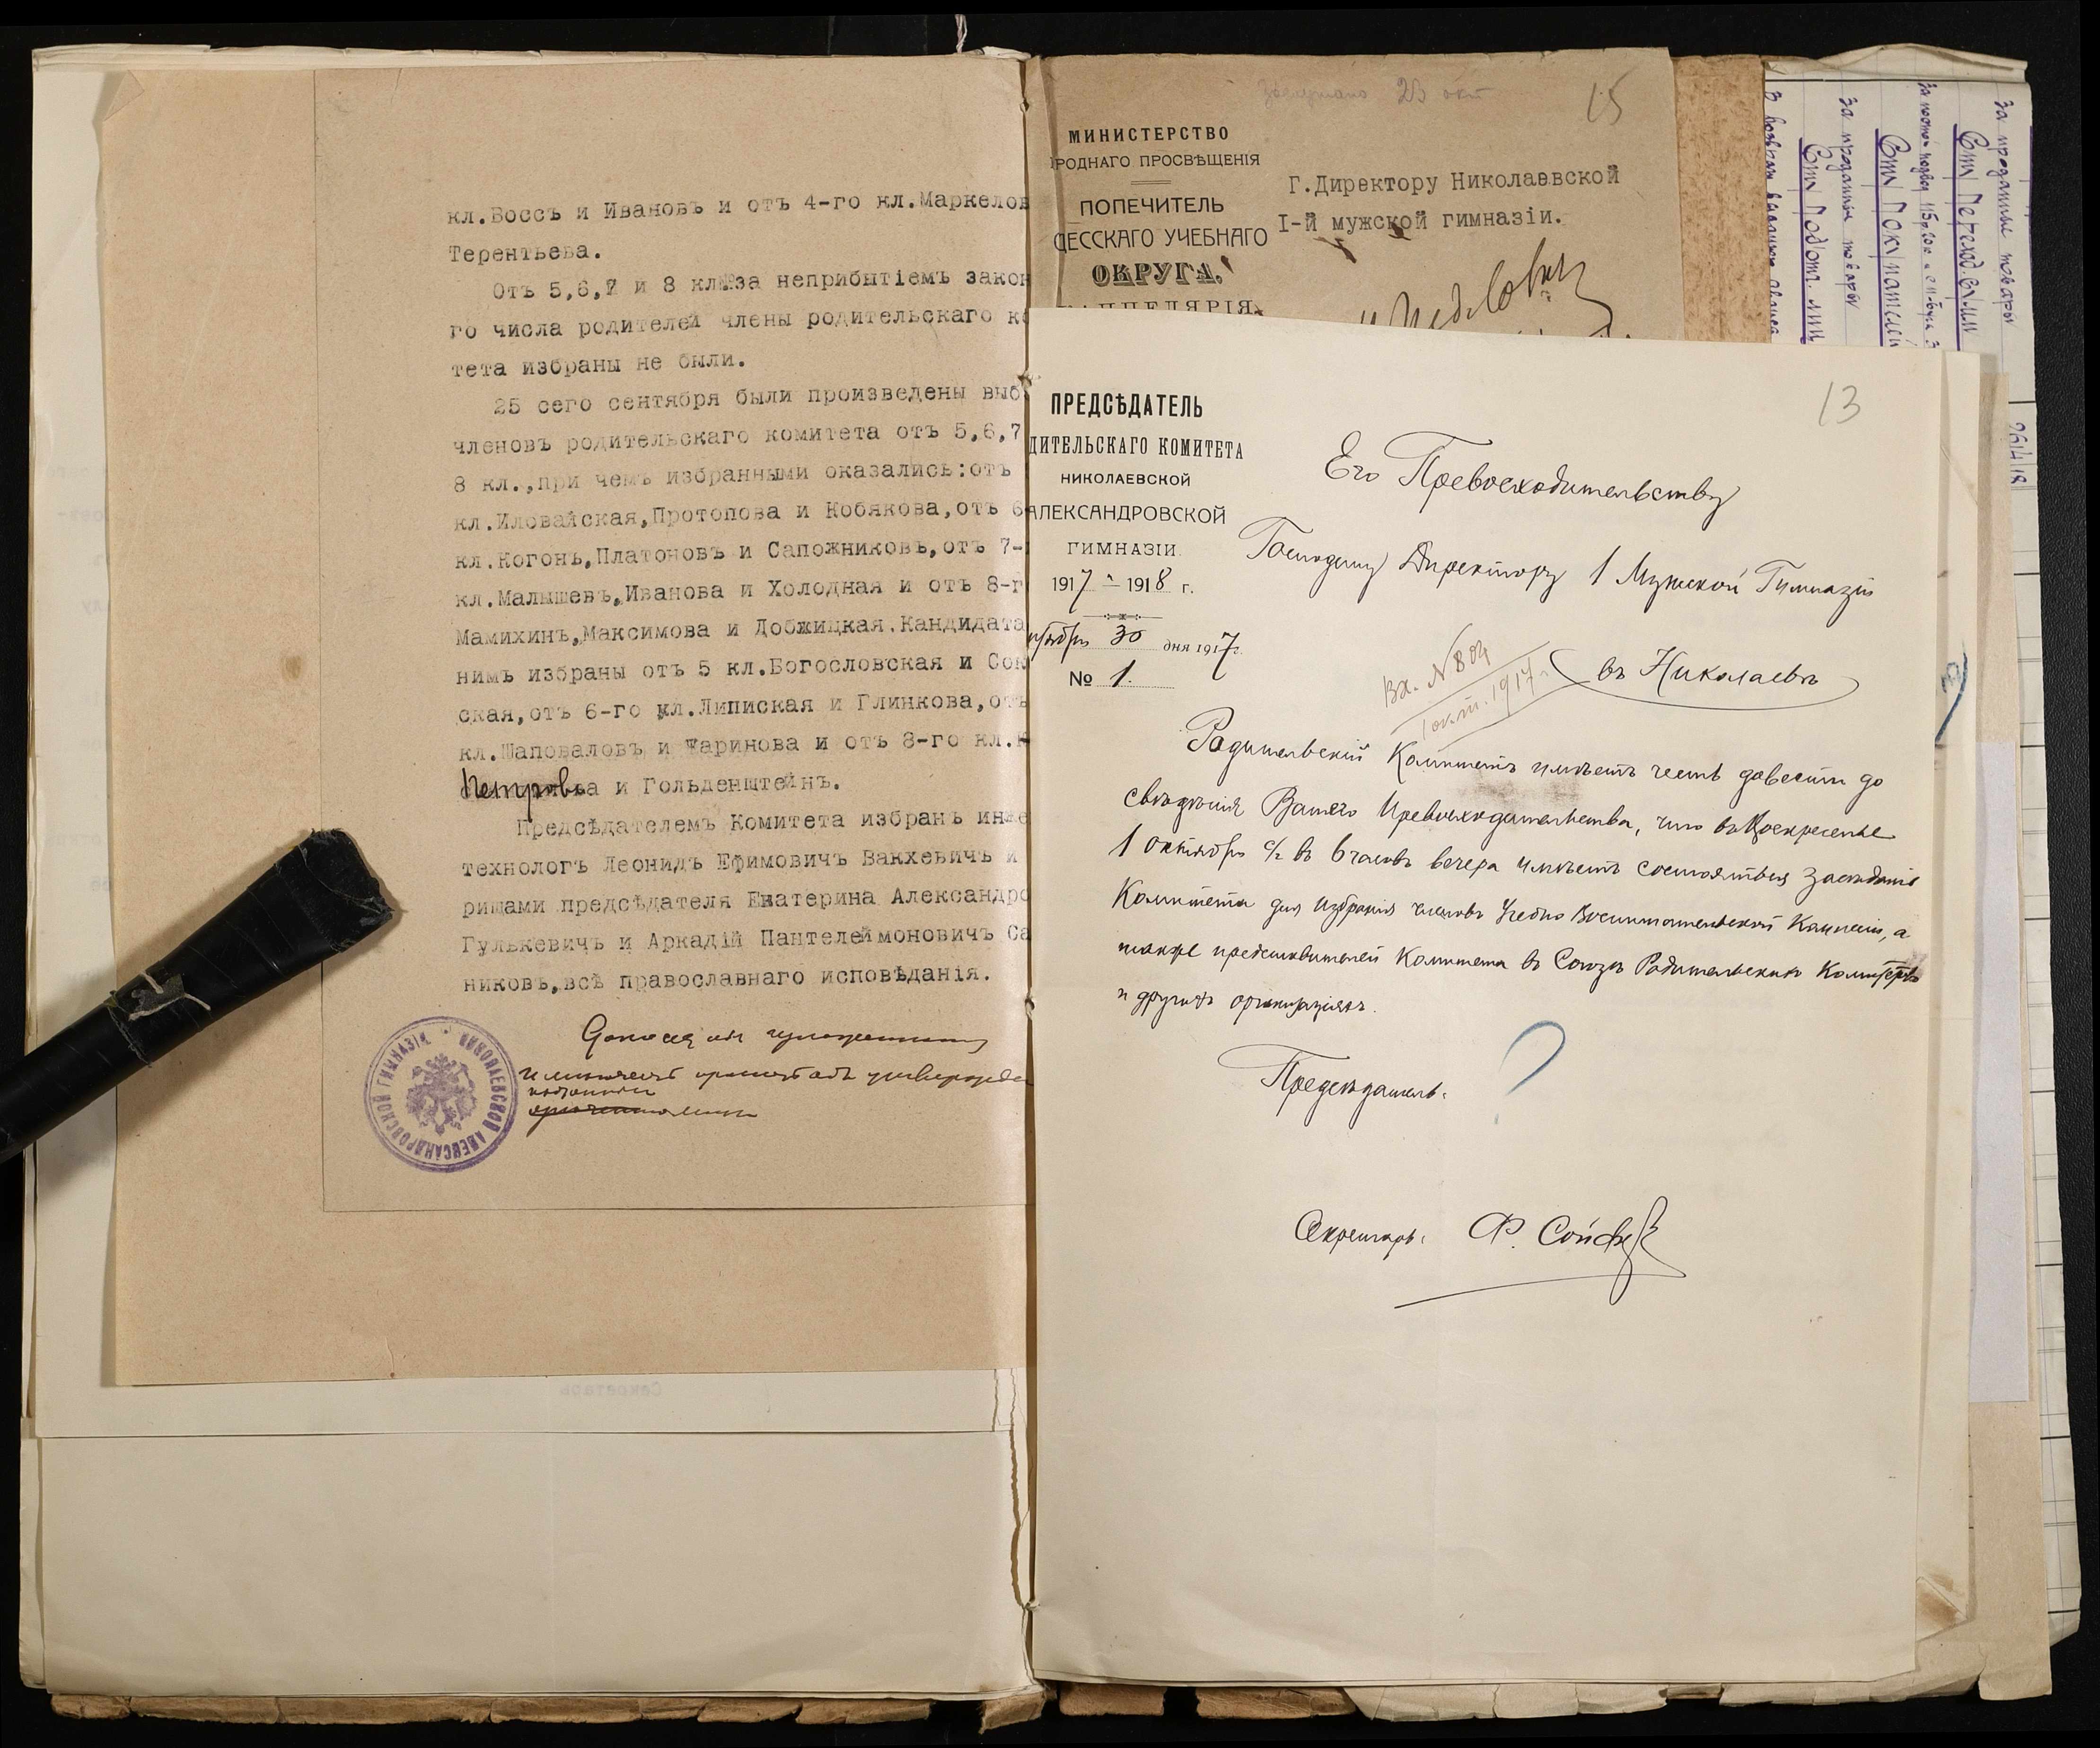 кл.Воссъ и Ивановъ и отъ 4-го кл.Маркелов
Терентьева.
Отъ 5,6,7 и 8 кл. за неприбытіемъ закон
го числа родителей члены родительскаго ко
тета избраны не были.
25 сего сентября были произведены выб
членовъ родительскаго комитета отъ 5,6,7
8 кл.,при чемъ избранными оказались:отъ
кл.Иловайская,Протопова и Кобякова,отъ 6
кл.Когонъ,Платоновъ и Сапожниковъ,отъ 7-
кл.Малышевъ,Иванова и Холодная и отъ 8-г
Мамихинъ,Максимова и Добжицкая.Кандидата
нимъ избраны отъ 5 кл.Богословская и Сок
ская,отъ 6-го кл.Липиская и Глинкова,отъ
кл.Шаповаловъ и Жаринова и отъ 8-го кл.К
Петрова и Гольденштейнъ.
Предсѣдателемъ Комитета избранъ инже
технологъ Леонидъ Ефимовичъ Вакхевичъ и
рищами предсѣдателя Екатерина Александро
Гулькевичъ и Аркадій Пантелеймоновичъ Са
никовъ,всѣ православнаго исповѣданія.
НИКОЛАЕВСКОЙ АЛЕКСАНДРОВСКОЙ ГИМНАЗІИ
23 окт
15
МИНИСТЕРСТВО
РОДНАГО ПРОСВѢЩЕНІЯ
ПОПЕЧИТЕЛЬ
ДЕССКАГО УЧЕБНАГО
ОКРУГА.
КАНЦЕЛЯРІЯ
Г.Директору Николаевской
I-й мужской гимназіи.
13
ПРЕДСѢДАТЕЛЬ
ДИТЕЛЬСКАГО КОМИТЕТА
НИКОЛАЕВСКОЙ
АЛЕКСАНДРОВСКОЙ
ГИМНАЗІИ.
1917 – 1918 г.
30 дня 1917 г.
№ 1.
Его Превосходительству
Господину Директору 1 Мужской Гимназіи
въ Николаевѣ
Вх. № 804
1 окт. 1917 г.
Родительскій Комитетъ имѣетъ честь довести до
свѣдѣнія Вашего Превосходительства, что въ Воскресенье
1 октября с/г въ 6 часовъ вечера имѣетъ состояться Засѣданіе
Комитета для избранія членовъ Учебно Воспитательской Комиссіи, а
также представителей Комитета въ Союзъ Родительскихъ Комитетовъ
и другихъ организаціяхъ.
Предсѣдатель:
Секретарь:
за проданные товары
Счт Переход. сумм
Счт Покупателей
за проданн товары
Счт Подотч. лиц